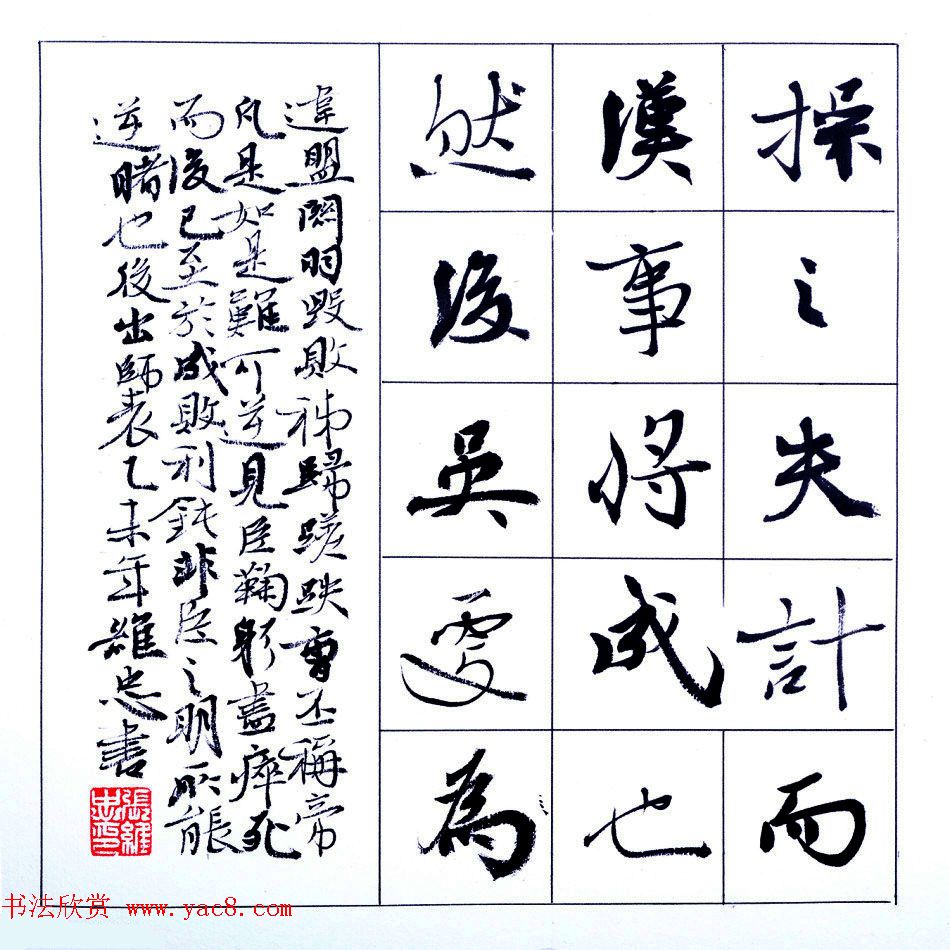 操之夫計而
漢事將成也
然後吳更為
違盟關羽毀敗秭歸蹉跌曹丕稱帝
凡是如是難可逆見臣鞠躬盡瘁死
而後已至於成敗利鈍非臣之明所能
逆睹也後出師表乙未年維忠書
張維忠印
书法欣赏 www.yac8.com